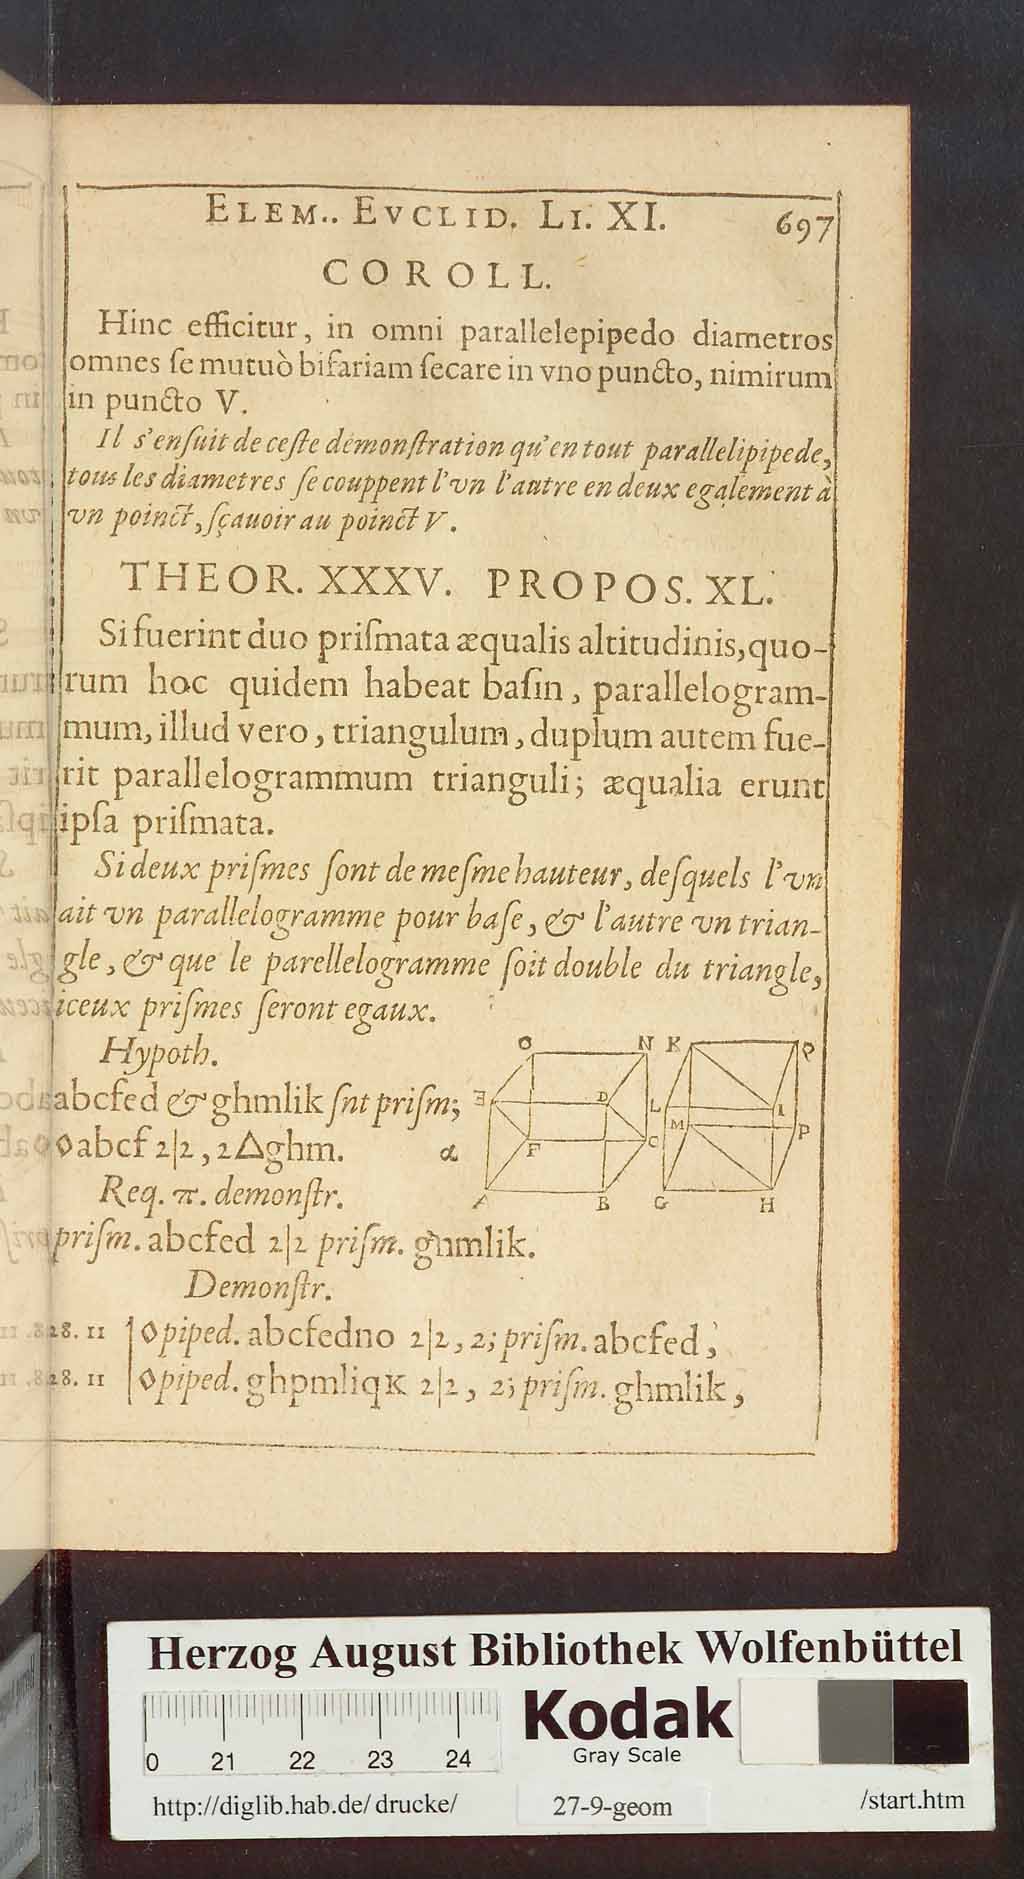 ELEM.. EVCLID. LI. XI. 697
COROLL.
Hinc efficitur, in omni parallelepipedo diametros
omnes ſe mutuò bifariam ſecare in vno puncto, nimirum
in puncto V.
Il s'enſuit de ceſte demonſtration qu'en tout parallelipipede,
tous les diametres ſe couppent l'vn l'autre en deux egalement à
vn poinct, ſçauoir au poinct V.
THEOR. XXXV. PROPOS. XL.
Si fuerint duo priſmata æqualis altitudinis, quo-
rum hoc quidem habeat baſin, parallelogram-
mum, illud vero, triangulum, duplum autem fue-
rit parallelogrammum trianguli; æqualia erunt
ipſa priſmata.
Si deux priſmes ſont de meſme hauteur, deſquels l'vn
ait vn parallelogramme pour baſe, & l'autre vn trian-
gle, & que le parellelogramme ſoit double du triangle,
iceux priſmes ſeront egaux.
Hypoth.
abcfed & ghmlik ſnt priſm;
◊abcf 2|2, 2△ghm.
Req. π. demonſtr.
priſm. abcfed 2|2 priſm. ghmlik.
O N K Q
E D L I
M P
α F C
A B G H
Demonſtr.
28. 11 ◊piped. abcfedno 2|2, 2; priſm. abcfed,
28. 11 ◊piped. ghpmliqK 2|2, 2; priſm. ghmlik,
Herzog August Bibliothek Wolfenbüttel
0 21 22 23 24
Kodak
Gray Scale
http://diglib.hab.de/drucke/ 27-9-geom /start.htm